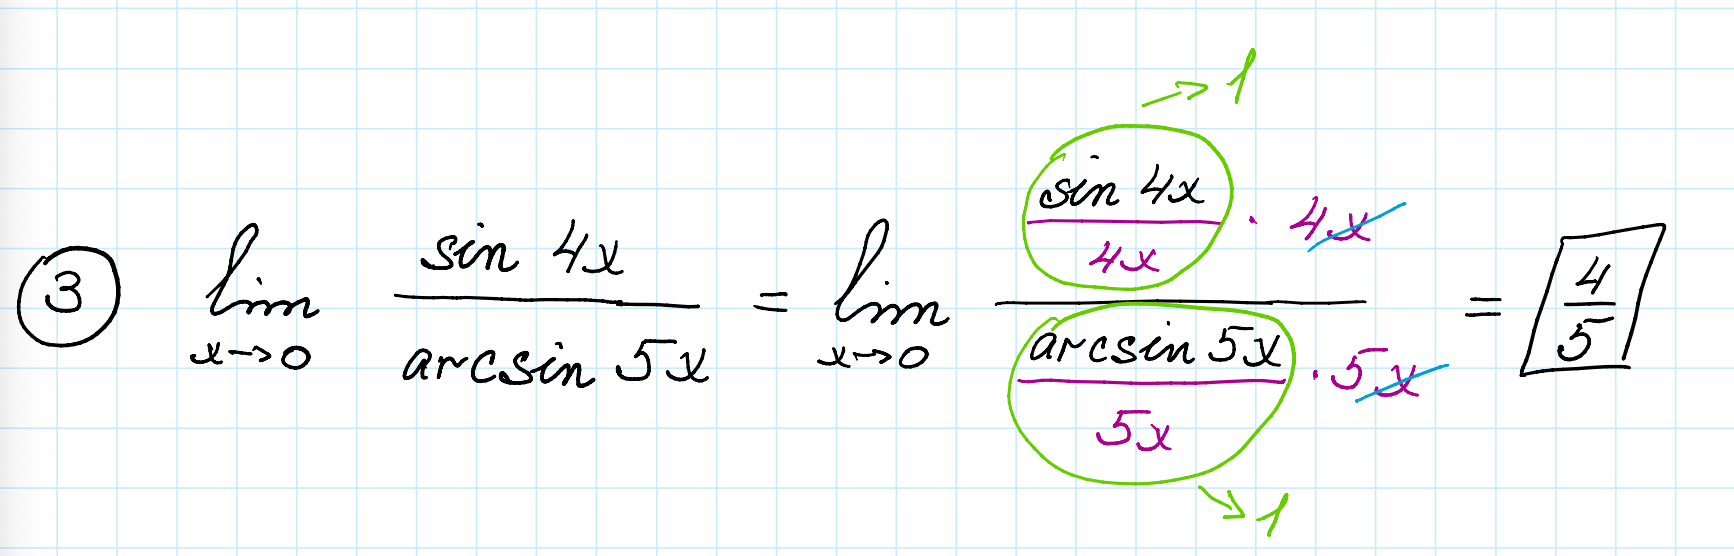 → 1
③ lim x→0 sin 4x / arcsin 5x = lim x→0 (sin 4x / 4x · 4x) / (arcsin 5x / 5x · 5x) = 4/5
→ 1